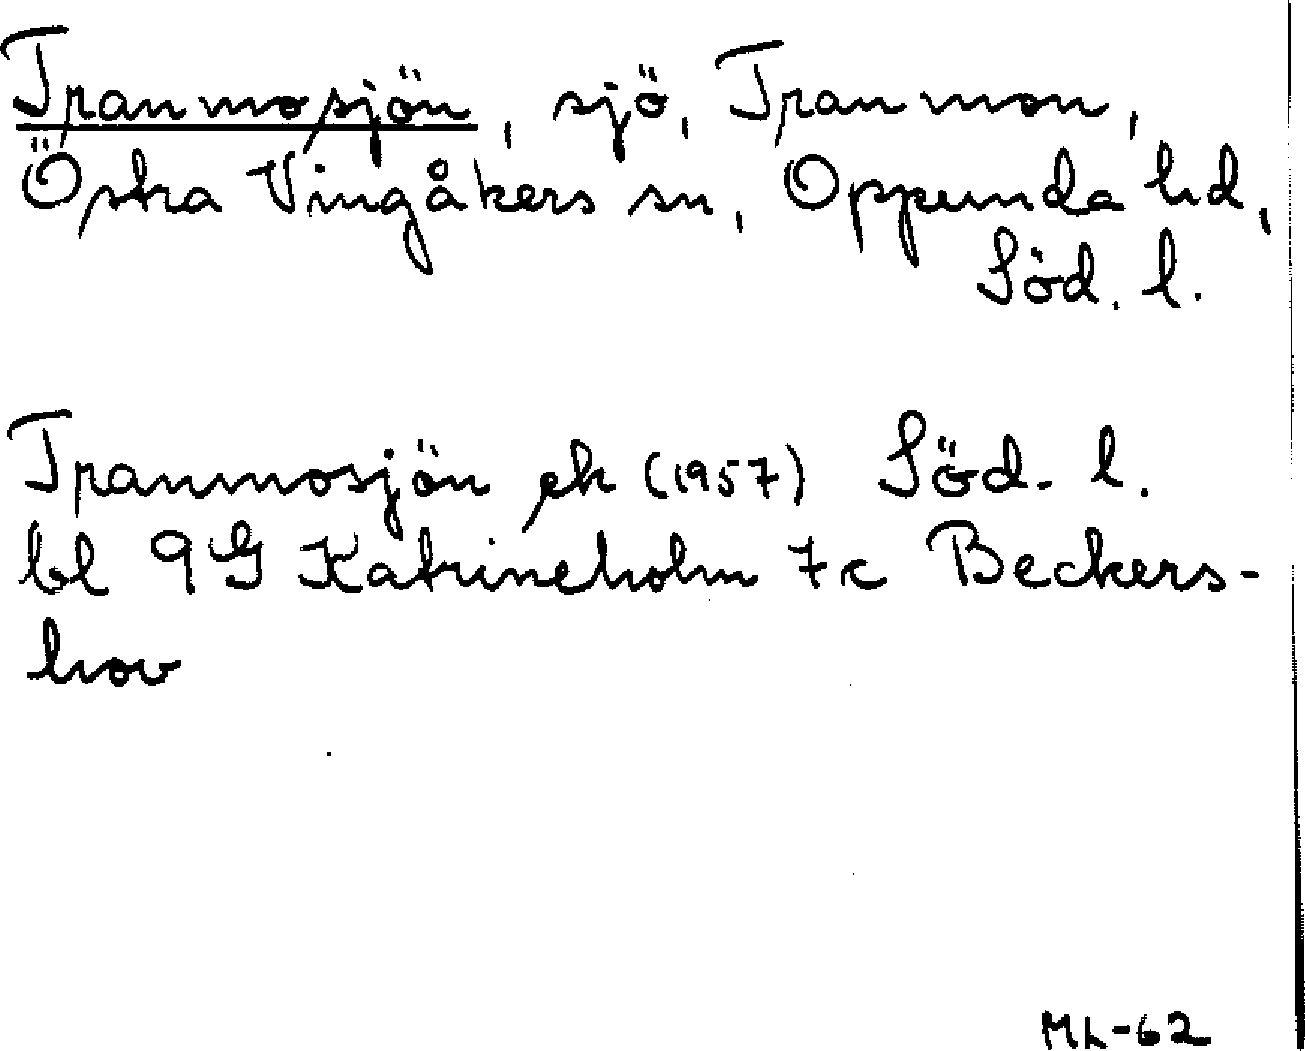 Tranmosjön, sjö, Tranmon,
Östra Vingåkers sn, Oppunda hd,
Söd. l.
Tranmosjön ek (1957) Söd. l.
bl 9G Katrineholm 7c Beckers-
hov
ML-62